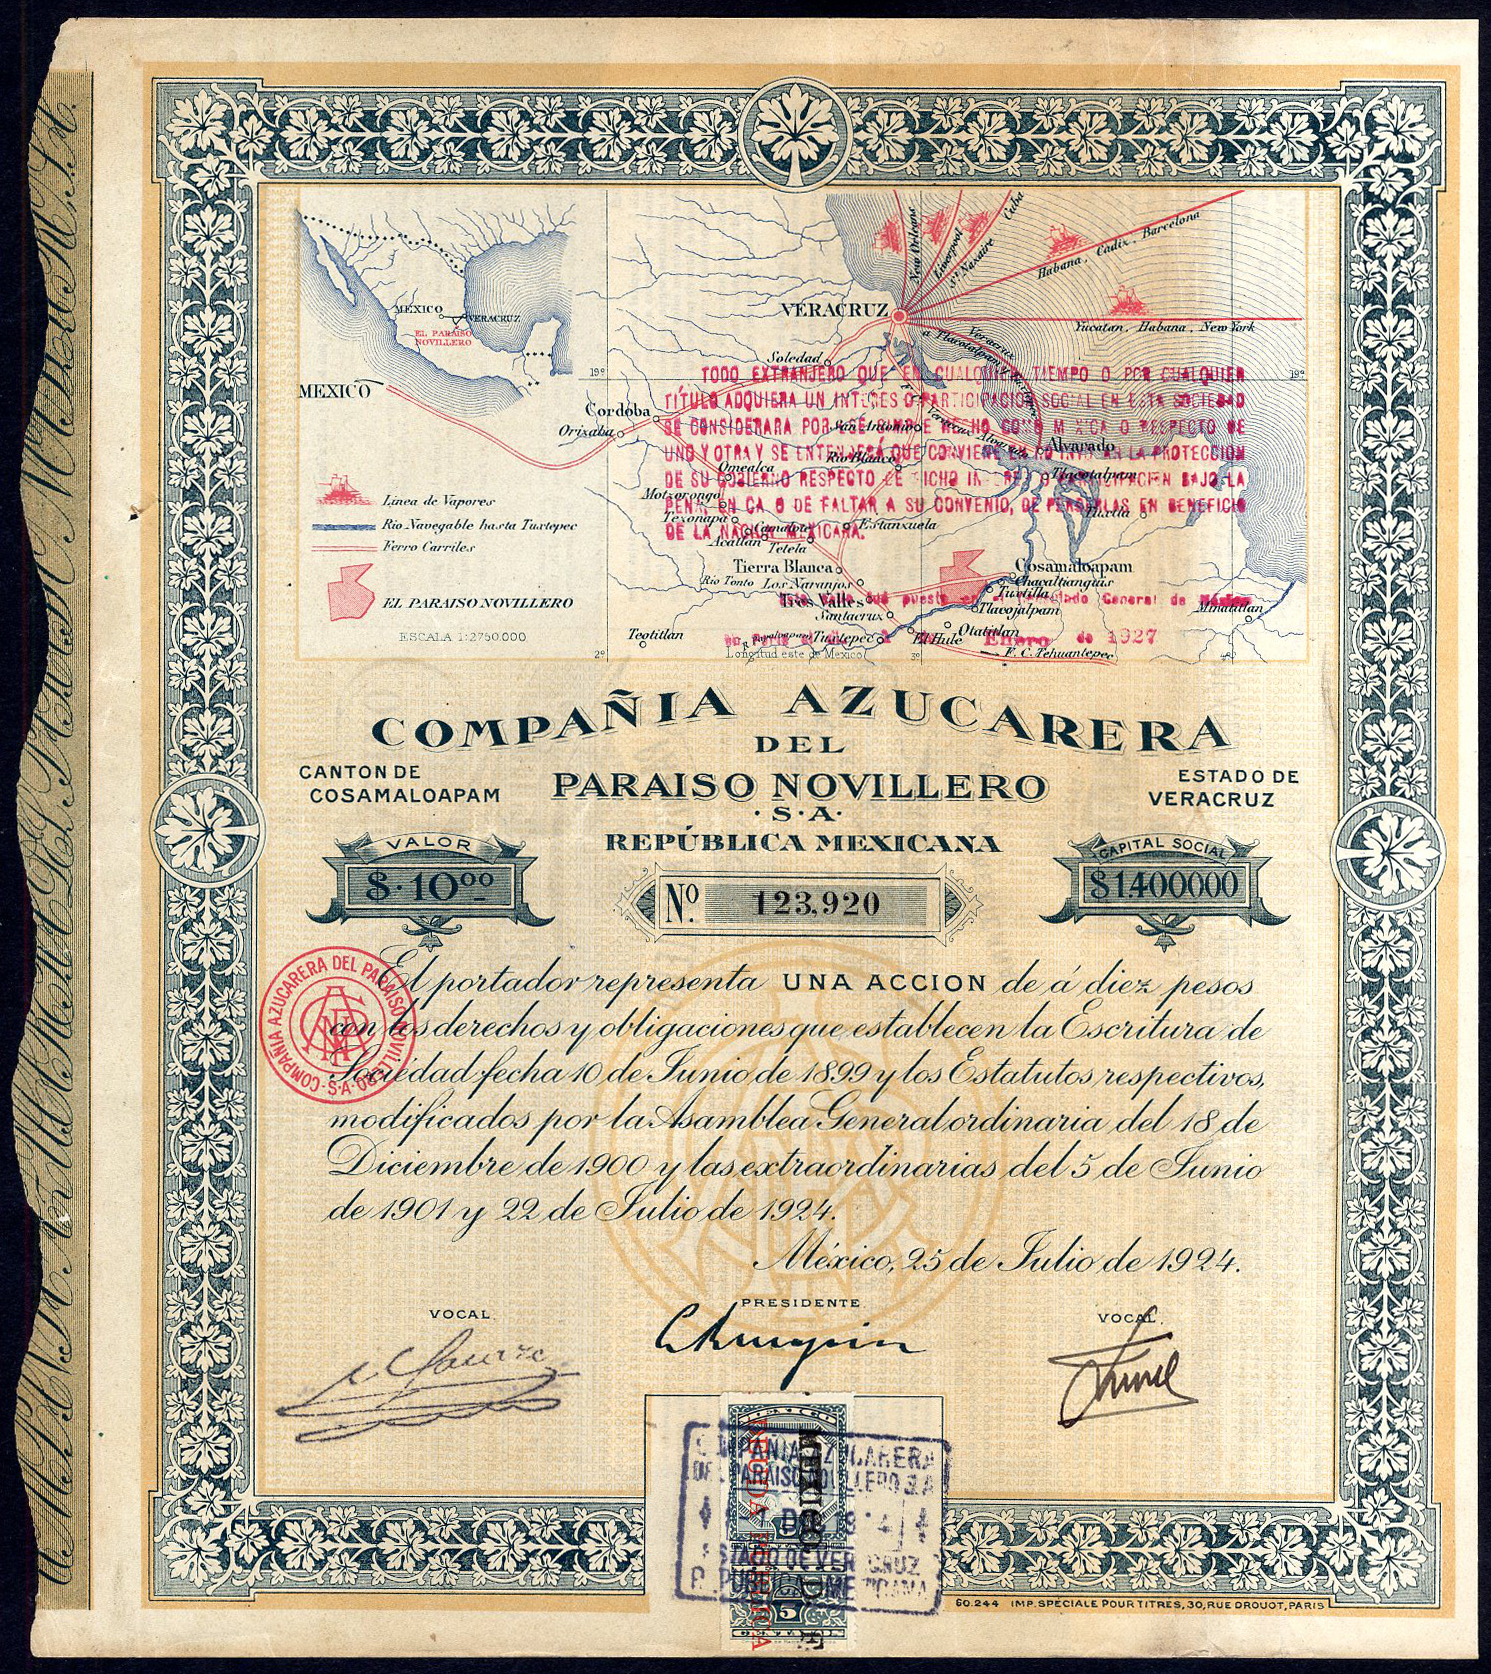 New Orleans
Liverpool
St Nazaire
Cuba
Habana, Cadix, Barcelona
Yucatan, Habana, New York
VERACRUZ
MEXICO
VERACRUZ
EL PARAISO
NOVILLERO
19º
19º
Soledad
MEXICO
Cordoba
Orizaba
TODO EXTRANJERO QUE EN CUALQUIER TIEMPO O POR CUALQUIER
TÍTULO ADQUIERA UN INTERES O PARTICIPACION SOCIAL EN ESTA SOCIEDAD
SE CONSIDERARA POR
UNO Y OTRA Y SE ENTENDERÁ QUE CONVIENE EN NO INVOCAR LA PROTECCION
DE SU GOBIERNO RESPECTO DE DICHO INTERES O PARTICIPACION BAJO LA
PENA, EN CASO DE FALTAR A SU CONVENIO, DE PERDERLAS EN BENEFICIO
DE LA NACION MEXICANA.
San Antonio
Alvarado
Rio Blanco
Tlacotalpam
Omealca
Motzorongo
Tezonapa
Camalote
Estanzuela
Acatlan
Tetela
Tierra Blanca
Cosamaloapam
Rio Tonto
Los Naranjos
Chacaltianguis
Tuxtilla
Tres Valles
Tlacojalpam
Santacruz
Minatitlan
General de México
Teotitlan
Tuxtepec
El Hule
Otatitlan
Enero de 1927
F. C. Tehuantepec
Longitud este de Mexico
2º
3º
Linea de Vapores
Rio Navegable hasta Tuxtepec
Ferro Carriles
EL PARAISO NOVILLERO
ESCALA 1:2750.000
COMPAÑIA AZUCARERA
DEL
PARAISO NOVILLERO
·S·A·
REPÚBLICA MEXICANA
CANTON DE
COSAMALOAPAM
ESTADO DE
VERACRUZ
VALOR
$·10⁰⁰
Nº 123,920
CAPITAL SOCIAL
$1400000
COMPAÑIA AZUCARERA DEL PARAISO NOVILLERO ·S·A·
El portador representa UNA ACCION de á diez pesos
con los derechos y obligaciones que establecen la Escritura de
Sociédad fecha 10 de Junio de 1899 y los Estatutos respectivos,
modificados por la Asamblea General ordinaria del 18 de
Diciembre de 1900 y las extraordinarias del 5 de Junio
de 1901 y 22 de Julio de 1924.
México, 25 de Julio de 1924.
VOCAL
PRESIDENTE
VOCAL.
COMPAÑIA AZUCARERA
DEL PARAISO NOVILLERO S.A.
ESTADO DE VERACRUZ
REPUBLICA MEXICANA
MEXICO D. F.
5
60.244 IMP. SPÉCIALE POUR TITRES, 30, RUE DROUOT, PARIS